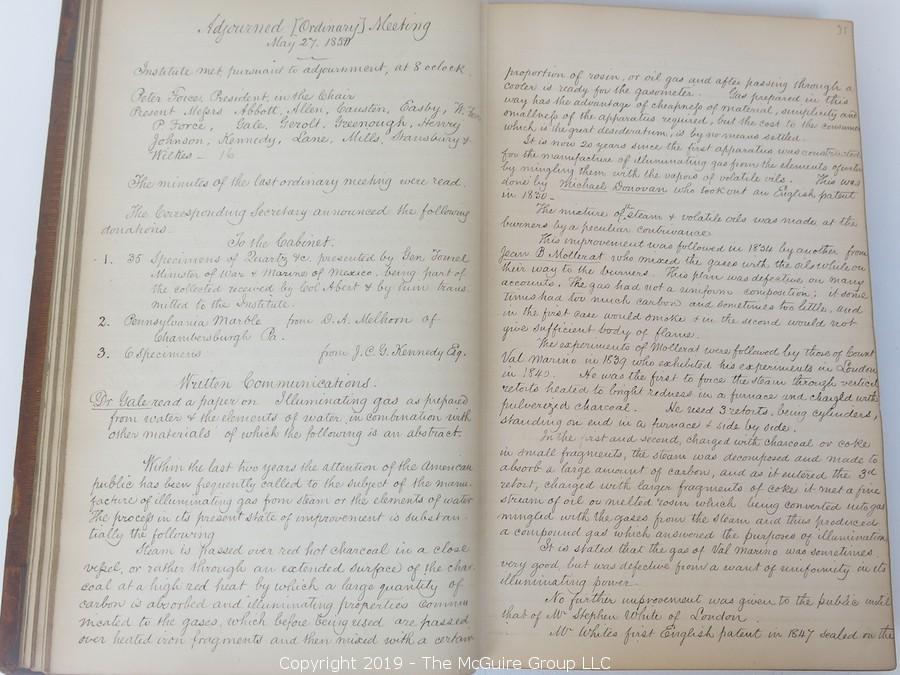 Adjourned [Ordinary] Meeting
May 27. 1850
Institute met pursuant to adjournment, at 8 oclock.
Peter Force, President, in the Chair
Present Messrs Abbott, Allen, Causten, Easby, W. Force
P. Force, Gale, Gerolt, Greenough, Henry
Johnson, Kennedy, Lane, Mills, Stansbury &
Wilkes – 16
The minutes of the last ordinary meeting were read.
The Corresponding Secretary announced the following
donations.
To the Cabinet.
1. 35 Specimens of Quartz &c. presented by Gen. Tornel
Minister of War & Marine of Mexico, being part of
the collected received by Col Abert & by him trans
mitted to the Institute.
2. Pennsylvania Marble from D. A. Melhorn of
Chambersburgh Pa.
3. 6 Specimens from J. C. G. Kennedy Esq.
Written Communications.
Dr Gale read a paper on Illuminating gas as prepared
from water & the elements of water in combination with
other materials of which the following is an abstract.
Within the last two years the attention of the American
public has been frequently called to the subject of the manu-
facture of illuminating gas from steam or the elements of water
The process in its present state of improvement is substan-
tially the following
Steam is passed over red hot charcoal in a close
vessel, or rather through an extended surface of the char-
coal at a high red heat by which a large quantity of
carbon is absorbed and illuminating properties commu
nicated to the gases, which before being used are passed
over heated iron fragments and then mixed with a certain
35
proportion of rosin, or oil gas and after passing through a
cooler is ready for the gasometer. Gas prepared in this
way has the advantage of cheapness of material, simplicity and
smallness of the apparatus required, but the cost to the consumer
which is the great desideratum, is by no means settled.
It is now 20 years since the first apparatus was constructed
for the manufacture of illuminating gas from the elements of water
by mingling them with the vapors of volatile oils. This was
done by Michael Donovan who took out an English patent
in 1830 –
The mixture of steam & volatile oils was made at the
burners by a peculiar contrivance
This improvement was followed in 1834 by another from
Jean B Mollerat who mixed the gases with the oils while on
their way to the burners. This plan was defective on many
accounts. The gas had not a uniform composition; it some
times had too much carbon and sometimes too little, and
in the first case would smoke & in the second would not
give sufficient body of flame.
The experiments of Mollerat were followed by those of Count
Val Marino in 1839 who exhibited his experiments in London
in 1840. He was the first to force the steam through vertical
retorts heated to bright redness in a furnace and charged with
pulverized charcoal. He used 3 retorts, being cylinders,
standing on end in a furnace & side by side.
In the first and second, charged with charcoal or coke
in small fragments, the steam was decomposed and made to
absorb a large amount of carbon, and as it entered the 3d
retort, charged with larger fragments of coke it met a fine
stream of oil or melted rosin which being converted into gas
mingled with the gases from the steam and thus produced
a compound gas which answered the purposes of illumination
It is stated that the gas of Val Marino was sometimes
very good, but was defective from a want of uniformity in its
illuminating power.
No further improvement was given to the public until
that of Mr Stephen White of London.
Mr Whites first English patent in 1847 sealed on the
Copyright 2019 - The McGuire Group LLC